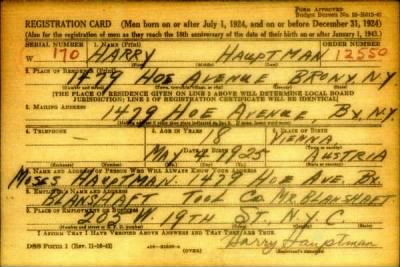 FORM APPROVED
REGISTRATION CARD (Men born on or after July 1, 1924, and on or before December 31, 1924)
(Also for the registration of men as they reach the 18th anniversary of the date of their birth on or after January 1, 1943.)
SERIAL NUMBER 1. NAME (Print) ORDER NUMBER
170 HARRY HAUPTMAN 12550
2. PLACE OF RESIDENCE (Print)
1429 HOE AVENUE BRONX, N.Y.
[THE PLACE OF RESIDENCE GIVEN ON LINE 2 ABOVE WILL DETERMINE LOCAL BOARD
JURISDICTION; LINE 2 OF REGISTRATION CERTIFICATE WILL BE IDENTICAL]
3. MAILING ADDRESS
1429 HOE AVENUE, BX, N.Y.
4. TELEPHONE 5. AGE IN YEARS 6. PLACE OF BIRTH
18 VIENNA
MAY 1925 AUSTRIA
7. NAME AND ADDRESS OF PERSON WHO WILL ALWAYS KNOW YOUR ADDRESS
HAUPTMAN. 1429 HOE AVE. BX.
8. EMPLOYER'S NAME AND ADDRESS
BLANSHAFT TOOL CO. MR. BLANSHAFT
9. PLACE OF EMPLOYMENT OR BUSINESS
W. 19TH ST. N.Y.C.
I AFFIRM THAT I HAVE VERIFIED ABOVE ANSWERS AND THAT THEY ARE TRUE.
DSS Form 1 Harry Hauptman